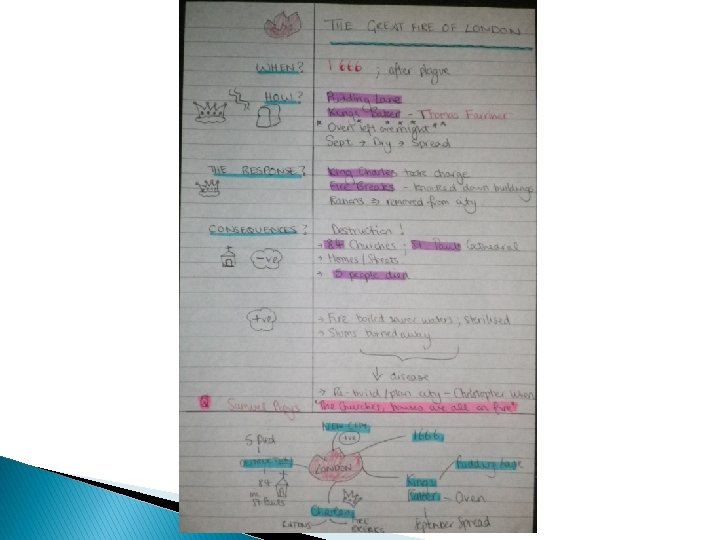 THE GREAT FIRE OF LONDON
WHEN? 1666 ; after plague
HOW? Pudding Lane
Kings Baker - Thomas Farriner
* Oven left overnight * * * * *
Sept → Dry → Spread
THE RESPONSE? King Charles take charge
Fire Breaks - knocked down buildings
removed from city
CONSEQUENCES? Destruction!
→ 84 Churches ; St Pauls Cathedral
→ Homes / Streets
→ 5 people died
-ve
+ve → Fire boiled sewer waters ; sterilised
→ Slums burned away
↓ disease
→ Re-build / plan city - Christopher Wren
Q Samuel Pepys "The churches, houses are all on fire"
NEW CITY
+ve
1666
5 died
LONDON
Pudding Lane
84
inc. St Pauls
Kings Baker - Oven
Charles
FIRE BREAKS
September Spread